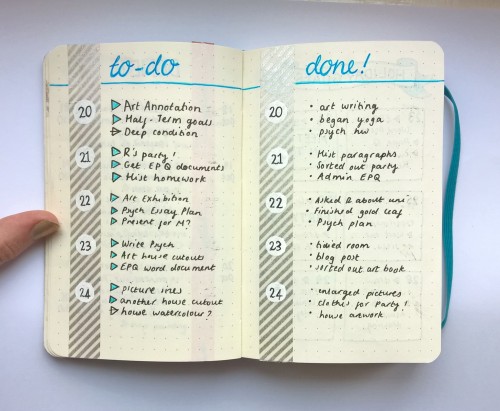 to-do
20
Art Annotation
Half-Term goals
Deep condition
21
R's party!
Get EPQ documents
Hist homework
22
Art Exhibition
Psych Essay Plan
Present for M?
23
Write Psych
Art house cutouts
EPQ word document
24
picture ines
another house cutout
house watercolour?
done!
20
• art writing
• began yoga
• psych hw
21
• Hist paragraphs
• Sorted out party
• Admin EPQ
22
• Asked R about uni
• Finished gold leaf
• Psych plan
23
• tidied room
• blog post
• sorted out art book
24
• enlarged pictures
• clothes for party!
• house artwork